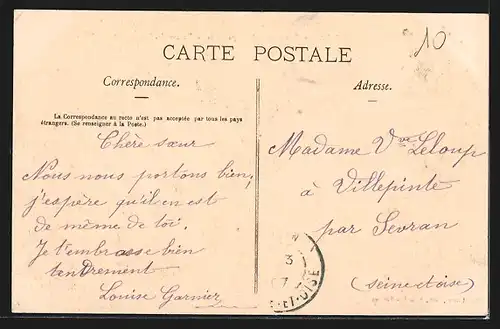 10
CARTE POSTALE
Correspondance.
La Correspondance au recto n'est pas acceptée par tous les pays
étrangers. (Se renseigner à la Poste.)
Chère sœur
Nous nous portons bien,
j'espère qu'il en est
de même de toi.
Je t'embrasse bien
tendrement
Louise Garnier
Adresse.
Madame Vve Leloup
à Villepinte
par Sevran
(Seine et oise)
3
ET-OISE